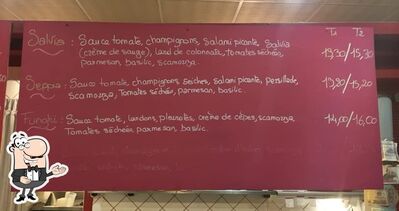 T1 T2
Salvia : Sauce tomate, champignons, Salami picante, Salvia
(crème de sauge), lard de colonnata, tomates séchées, 13,30/15,30
parmesan, basilic, scamorza.
Seppia : Sauce tomate, champignons, Seiches, Salami picante, persillade, 13,20/15,20
Scamorza, Tomates séchées, parmesan, basilic.
Funghi : Sauce tomate, lardons, pleurotes, crème de cèpes, scamorza, 14,00/16,00
Tomates séchées, parmesan, basilic.